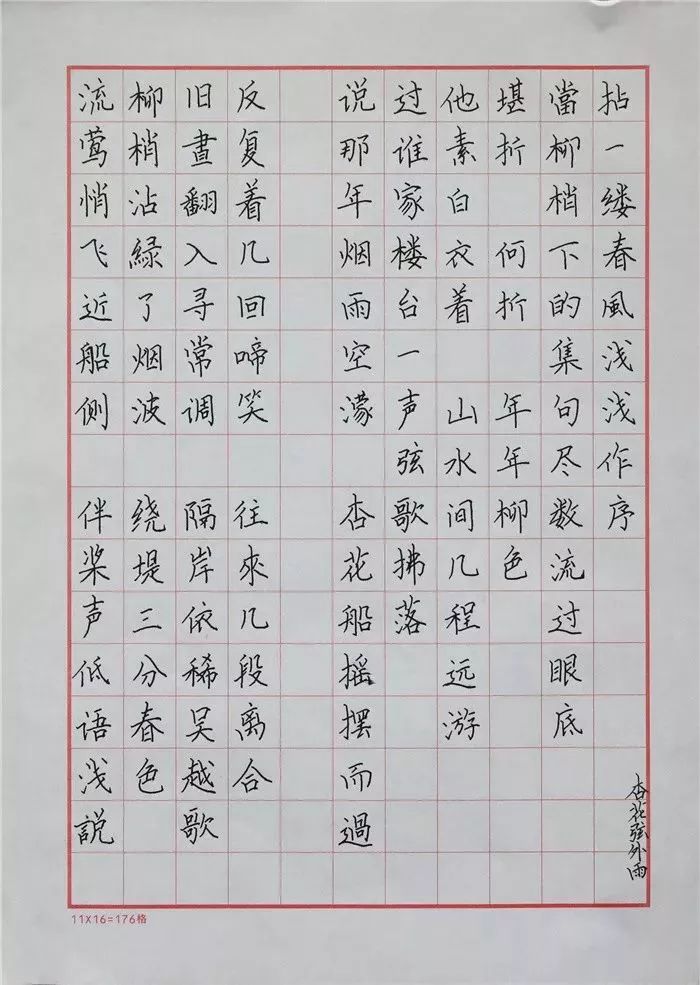 拈一缕春風浅浅作序
當柳梢下的集句尽数流过眼底
堪折 何折 年年柳色
他素白衣着 山水间几程远游
过谁家楼台一声弦歌拂落
说那年烟雨空濛 杏花船摇摆而過
反复着几回啼笑 往來几段离合
旧晝翻入寻常调 隔岸依稀吴越歌
柳梢沾緑了烟波 绕堤三分春色
流莺悄飞近船侧 伴桨声低语浅説
杏花弦外雨
11X16=176格